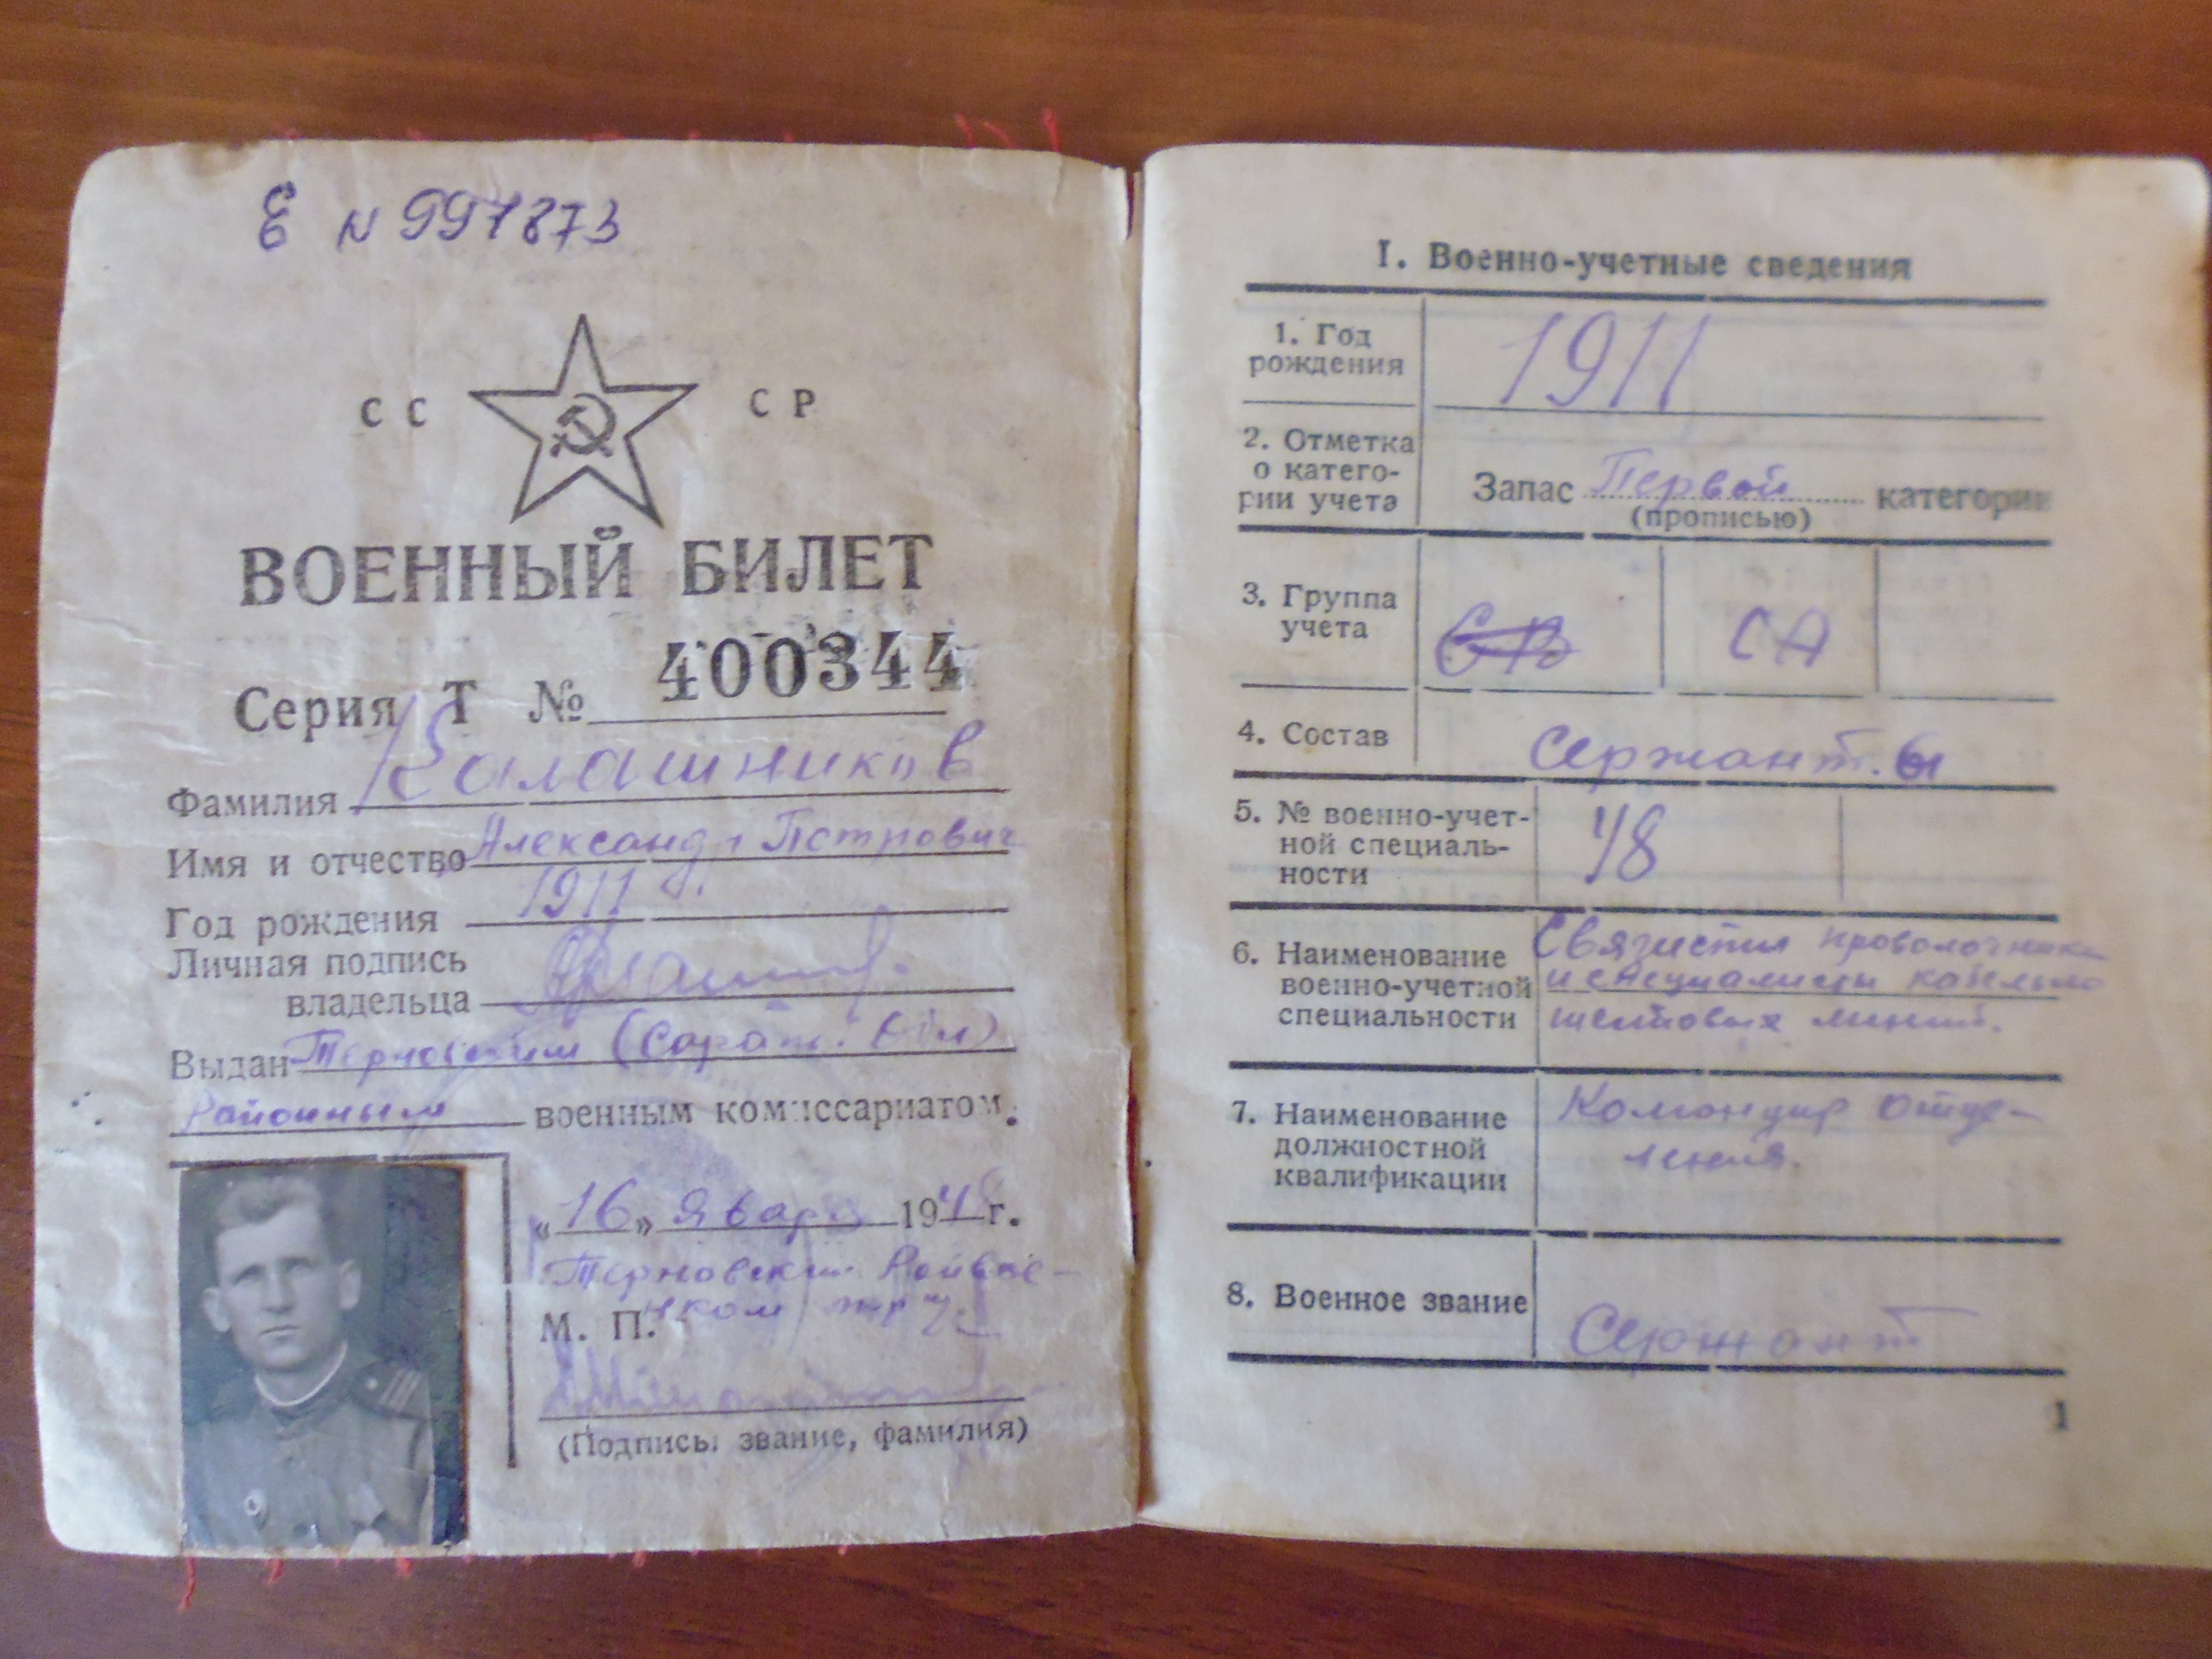 Е N 997873
СС СР
ВОЕННЫЙ БИЛЕТ
Серия Т № 400344
Фамилия Калашников
Имя и отчество Александр Петрович
Год рождения 1911
Личная подпись
владельца
Выдан Терновским (Сарат. Обл)
Районным военным комиссариатом.
«16» января 194 г.
Терновский
М. П.
(Подпись, звание, фамилия)
I. Военно-учетные сведения
1. Год
рождения
1911
2. Отметка
о катего-
рии учета
Запас Первой категории
(прописью)
3. Группа
учета
СА
4. Состав
Сержант.ы
5. № военно-учет-
ной специаль-
ности
48
6. Наименование
военно-учетной
специальности
Связисты
и специалисты кабельно
шестовых линий.
7. Наименование
должностной
квалификации
Командир отде-
ления.
8. Военное звание
Сержант
1